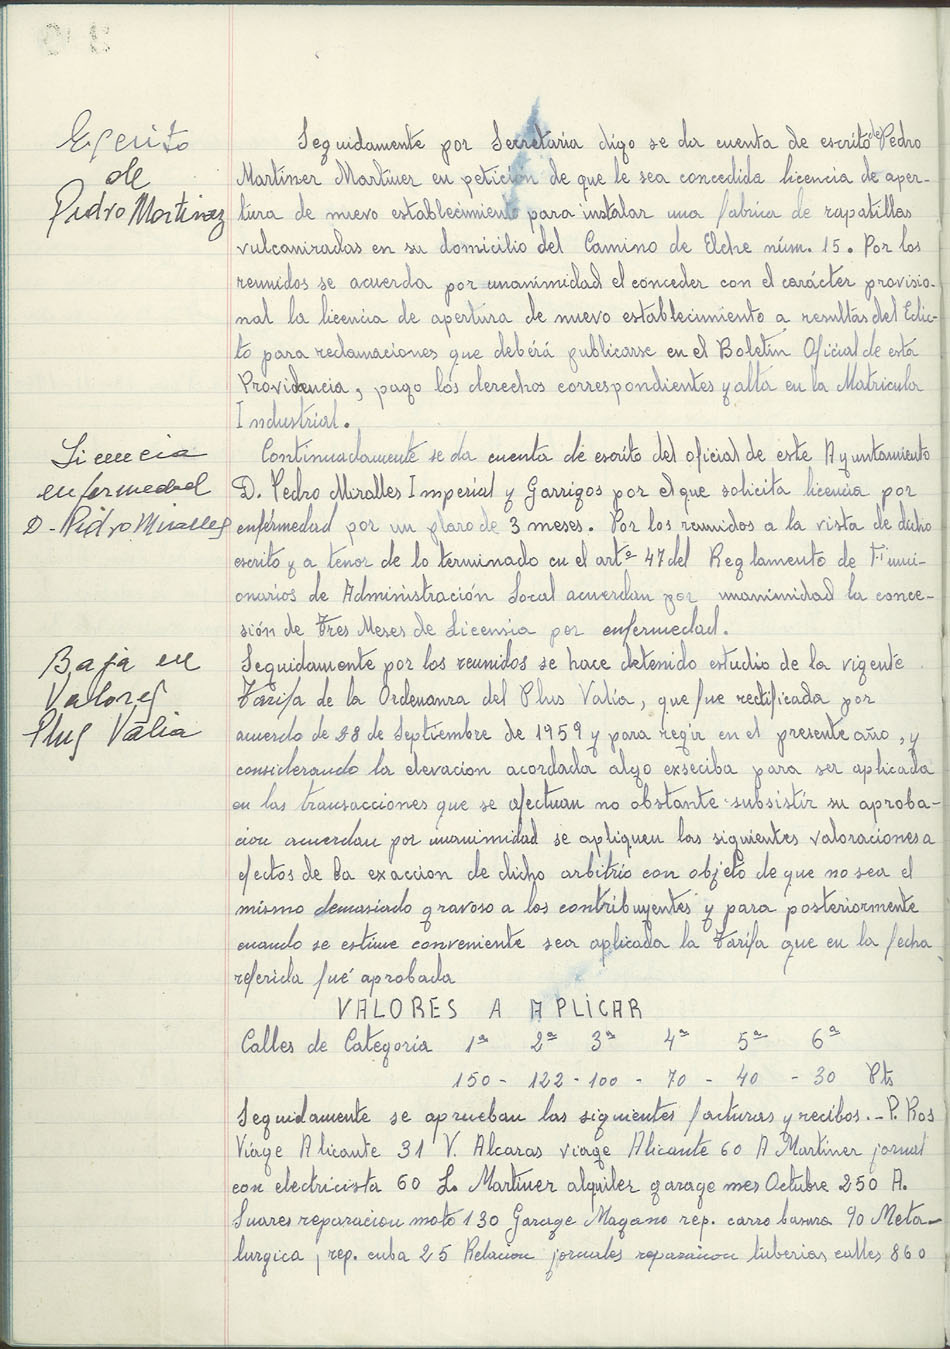 Escrito
de
Pedro Martinez
Seguidamente por Secretaria digo se da cuenta de escrito de Pedro
Martiner Martiner en petición de que le sea concedida licencia de aper-
tura de nuevo establecimiento para instalar una fabrica de zapatillas
vulcanizadas en su domicilio del Camino de Elche núm. 15. Por los
reunidos se acuerda por unanimidad el conceder con el carácter provisio-
nal la licencia de apertura de nuevo establecimiento a resultas del Edic-
to para reclamaciones que deberá publicarse en el Boletin Oficial de esta
Providencia, pago los derechos correspondientes y alta en la Matricula
Industrial.
Licencia
enfermedad
D. Pedro Miralles
Continuadamente se da cuenta de escrito del oficial de este Ayuntamiento
D. Pedro Miralles Imperial y Garrigos por el que solicita licencia por
enfermedad por un plazo de 3 meses. Por los reunidos a la vista de dicho
escrito y a tenor de lo terminado en el artº 47 del Reglamento de Funci-
onarios de Administración Local acuerdan por unanimidad la conce-
sión de Tres Meses de Licensia por enfermedad.
Baja en
Valores
Plus Valia
Seguidamente por los reunidos se hace detenido estudio de la vigente
Tarifa de la Ordenanza del Plus Valia, que fue rectificada por
acuerdo de 28 de Septiembre de 1959 y para regir en el presente año, y
considerando la elevacion acordada algo exseciba para ser aplicada
en las transacciones que se efectuan no obstante subsistir su aproba-
cion acuerdan por unanimidad se apliquen las siguientes valoraciones a
efectos de la exaccion de dicho arbitrio con objeto de que no sea el
mismo demasiado gravoso a los contribuyentes y para posteriormente
cuando se estime conveniente sea aplicada la Tarifa que en la fecha
referida fué aprobada
VALORES A APLICAR
Calles de Categoria 1ª 2ª 3ª 4ª 5ª 6ª
150 - 122 - 100 - 70 - 40 - 30 Pts
Seguidamente se aprueban las siguientes facturas y recibos.- P. Ros
Viage Alicante 31 V. Alcaras viage Alicante 60 A Martiner jornal
con electricista 60 L. Martiner alquiler garage mes Octubre 250 A.
Suares reparacion moto 130 Garage Magano rep. carro basura 90 Meta-
lurgica, rep. cuba 25 Relacion jornales reparacion tuberias calles 860